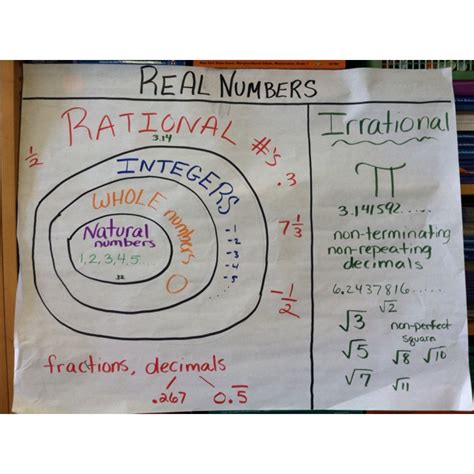 REAL NUMBERS
RATIONAL #'s
3.14
1/2
INTEGERS
.3
WHOLE numbers
Natural
numbers
1, 2, 3, 4, 5....
32
0
-1
-2
-3
-4
-5
7 1/3
-1/2
fractions, decimals
.267
0.5̅
Irrational
π
3.141592.....
non-terminating
non-repeating
decimals
6.2437816......
√2
√3
non-perfect
square
√5
√8
√10
√7
√11